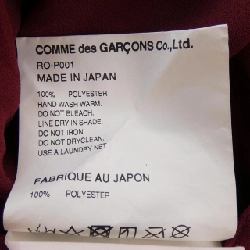 COMME des GARÇONS Co,.Ltd.
RO-P001
MADE IN JAPAN
100% POLYESTER
HAND WASH WARM.
DO NOT BLEACH.
LINE DRY IN SHADE.
DO NOT IRON
DO NOT DRYCLEAN.
USE A LAUNDRY NET
FABRIQUE AU JAPON
100% POLYESTER